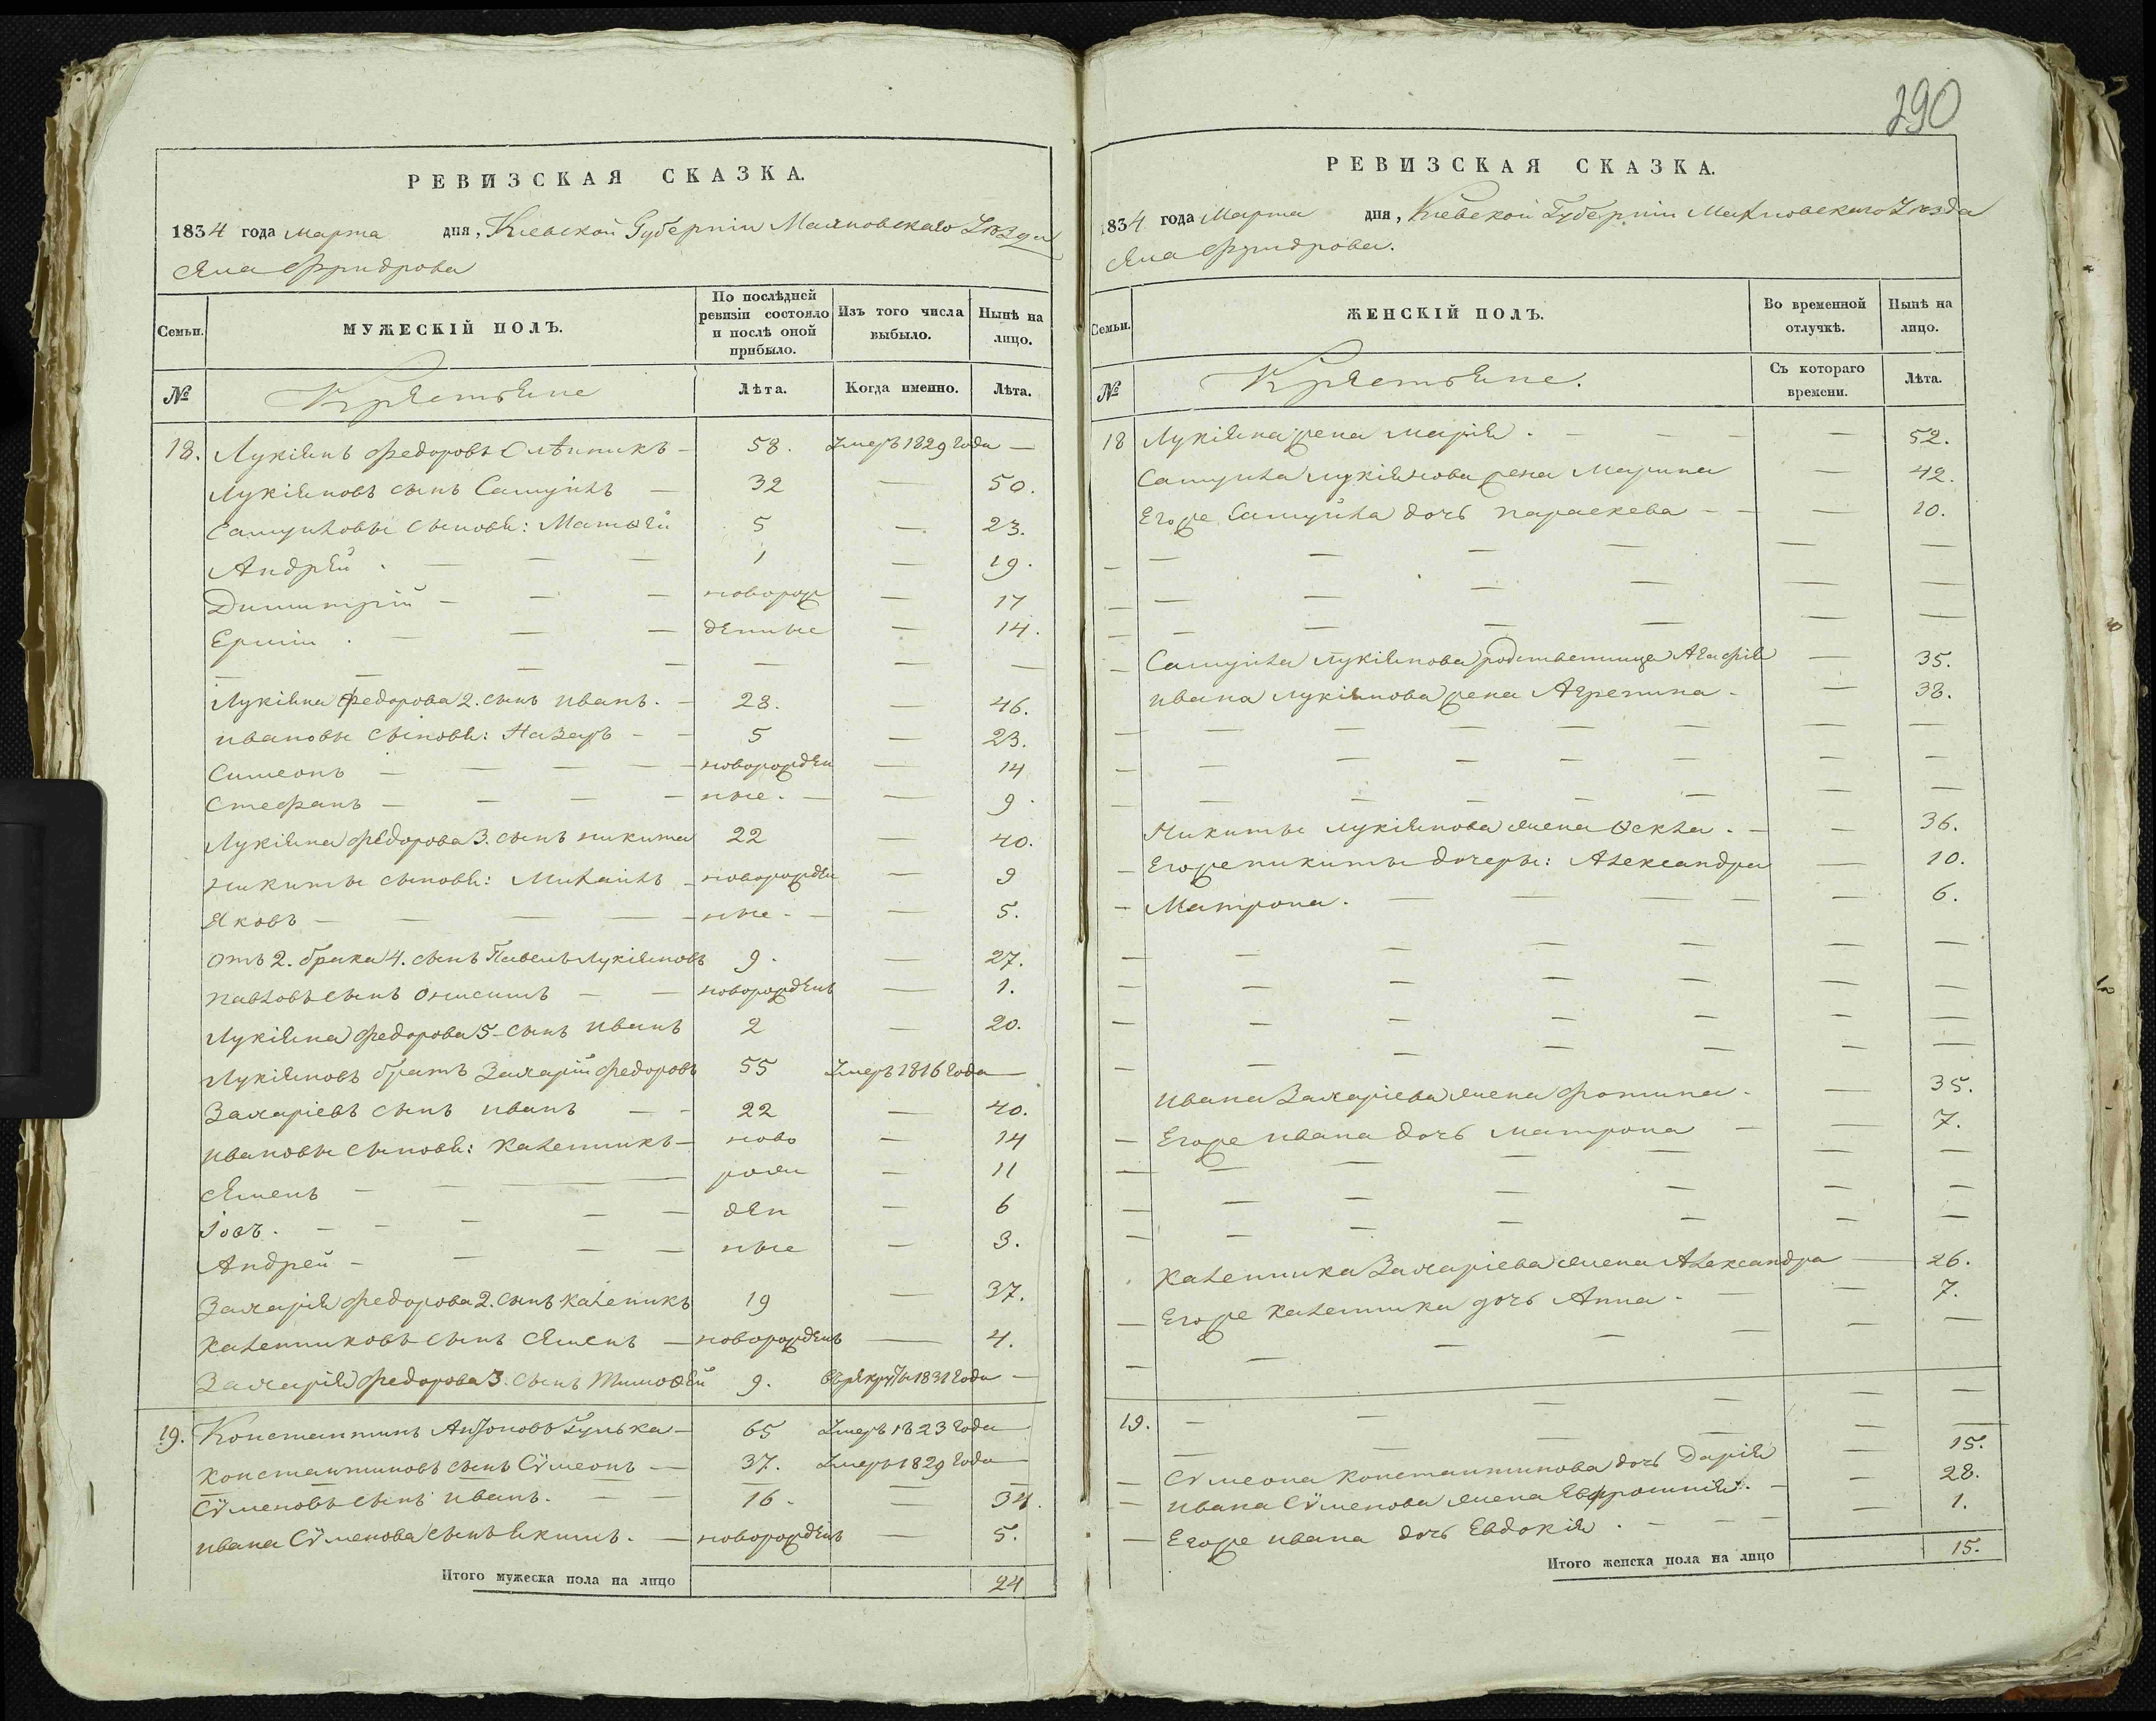 290
РЕВИЗСКАЯ СКАЗКА.
1834 года марта дня, Кіевской Губерніи Махновскаго Уѣзда
Яма Фридрова
Семьи. МУЖЕСКІЙ ПОЛЪ. По послѣдней ревизіи состояло и послѣ оной прибыло. Изъ того числа выбыло. Нынѣ на лицо.
№ Крестьяне Лѣта. Когда именно. Лѣта.
18. Лукіянъ Федоровъ Олѣйникъ – 58. Умеръ 1829 года —
Лукіяновъ сынъ Самуилъ — 32 — 50.
Самуиловы сыновья: Матѳей 5 — 23.
Андрей . — — — 1 — 19.
Димитрій — — — новорож — 17
Ермій . — — — денные — 14.
— — — — — — —
Лукіяна Федорова 2. сынъ иванъ. – 28. — 46.
ивановы сыновья: Назаръ – – 5 — 23.
Симеонъ — — — — новорожден — 14
Стефанъ — — — — ные. — — 9.
Лукіяна Федорова 3. сынъ никита 22 — 40.
никиты сыновья: Михаилъ – новорожден — 9
Яковъ — — — — ные. — — 5.
отъ 2. брака 4. сынъ Павелъ Лукіяновъ 9. — 27.
павловъ сынъ онисимъ — — новорожденъ — 1.
Лукіяна Федорова 5. сынъ иванъ 2 — 20.
Лукіяновъ братъ Захарій Федоровъ 55 Умеръ 1816 года —
Захаріевъ сынъ иванъ — – 22 — 40.
ивановы сыновья: каленикъ – ново — 14
Яменъ — — — рож — 11
Іовъ. — – — — — ден — 6
Андрей – — — — ные — 3.
Захарія Федорова 2. сынъ каленикъ 19 — 37.
калениковъ сынъ Яменъ — новорожденъ — 4.
Захарія Федорова 3. сынъ Тимоѳей 9. въ рекруты 1831 года —
19. Константинъ Антоновъ Гулька – 65 Умеръ 1823 года —
константиновъ сынъ Сѵмеонъ — 37. Умеръ 1829 года —
Сѵменовъ сынъ иванъ. — — 16. — 34.
ивана Сѵменова сынъ Якимъ. — новорожденъ — 5.
Итого мужеска пола на лицо 24
РЕВИЗСКАЯ СКАЗКА.
1834 года Марта дня, Кіевской Губерніи Махновскаго Уѣзда
Яма Фридрова.
Семьи. ЖЕНСКІЙ ПОЛЪ. Во временной отлучкѣ. Нынѣ на лицо.
№ Крестьяне. Съ котораго времени. Лѣта.
18 Лукіяна жена марія . — — — — 52.
Самуила лукіянова жена Марина — 42.
Егоже Самуйла дочъ параскева – – — 10.
— — — — — — —
— — — — — — —
— — — — — — —
— Самуила лукіянова родственница Агафія — 35.
ивана лукіянова жена Агрепина – — 38.
— — — — — — — —
— — — — — — — —
— — — — — — — —
Никиты лукіянова жена Ѳекла . – — 36.
— Егоже никиты дочеры: Александра — 10.
— Матрона . — — — — — 6.
— — — — — — —
— — — — — — —
— — — — — — —
— — — — — — —
ивана Захаріева жена фотина – — 35.
— Егоже ивана дочъ матрона – — 7.
— — — — — — —
— — — — — — —
— — — — — — —
каленика Захаріева жена Александра — 26.
— Егоже каленика дочъ Анна – — — 7.
— — — — — — —
19. — — — — — —
— — — — — —
— Сѵмеона константинова дочъ Дарія — 15.
— ивана Сѵменова жена Евфросинія. – — 28.
— Егоже ивана дочъ Евдокія . – – — — 1.
Итого женска пола на лицо 15.